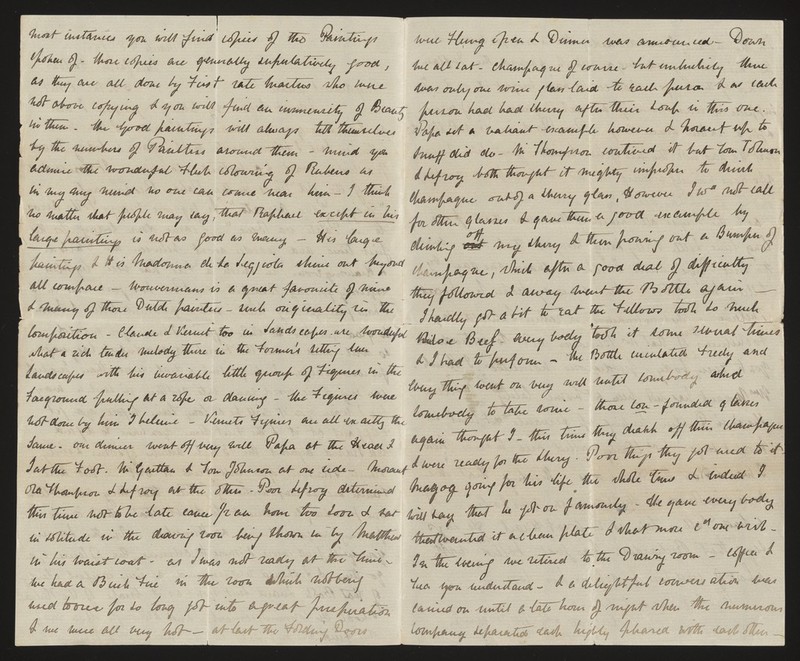 most instances you will find copies of the Paintings
spoken of - those copies are generally superlatively good,
as they are all done by first rate Masters who were
not above copying & you will find an immensity of Beauty
in them. the good paintings will always tell themselves
by the numbers of Painters around them - mind you
admire the wonderful flesh colouring of Rubens as
in my my mind no one can come near him - I think
no matter what people may say, that Raphael except in his
large paintings is not as good as many - His large
paintings & His Madonna de la Seggiola shine out beyond
all compare - Wouvermans is a great favourite of mine
& many of those Dutch painters - such originality in the
composition - Claude & Vernet too in Landscapes are wonderful
what a rich tender melody there in the former's setting sun
Landscapes with his invariable little group of Figures in the
foreground pulling at a rope or dancing - the Figures were
not done by him I believe - Vernets Figures are all exactly the
same - our dinner went off very well Papa at the Head &
I at the foot. Mr & Tom Johnson at one side - Morant
old Thompson & Lefroy at the other - Poor Lefroy determined
this time not to be late came 1/2 an hour too soon & sat
in solitude in the drawing room being shown in by Matthew
in his waist coat - as I was not ready at the time -
we had a Fire in the room which not being
used to one for so long got into a great
& we were all very hot - at last the folding Doors
were flung open & Dinner was announced - Down
we all sat - champagne of course - but unluckily there
was only one wine glass laid to each person & as each
person had had sherry after their soup in this one.
Papa set a valiant example however & Morant up to
snuff did do - Mr Thompson contrived it but Tom Johnson
& Lefroy both thought it mighty improper to drink
champagne out of a sherry glass, However I wd not call
for other glasses & gave them a good example by
drinking off my sherry & then pouring out a Bumper of
champagne, which after a good deal of difficulty
they followed & away went the Bottle again -
I hardly got a bit to eat the fellows took so much
Beef every body took it some several times
& I had to perform - the Bottle circulated freely and
every thing went on very well until somebody asked
somebody to take wine - those con-founded glasses
again thought I - this time they drank off their champagne
& were ready for the sherry. Poor things they got used to it -
going for his life the whole time & indeed I
will say that he got on famously - He gave every body
a clean plate & what more cd one wish -
In the evening we retired to the Drawing room - coffee &
tea you understand - & a delightful conversation was
carried on until a late hour of night when the numerous
company separated each highly pleased with each other -